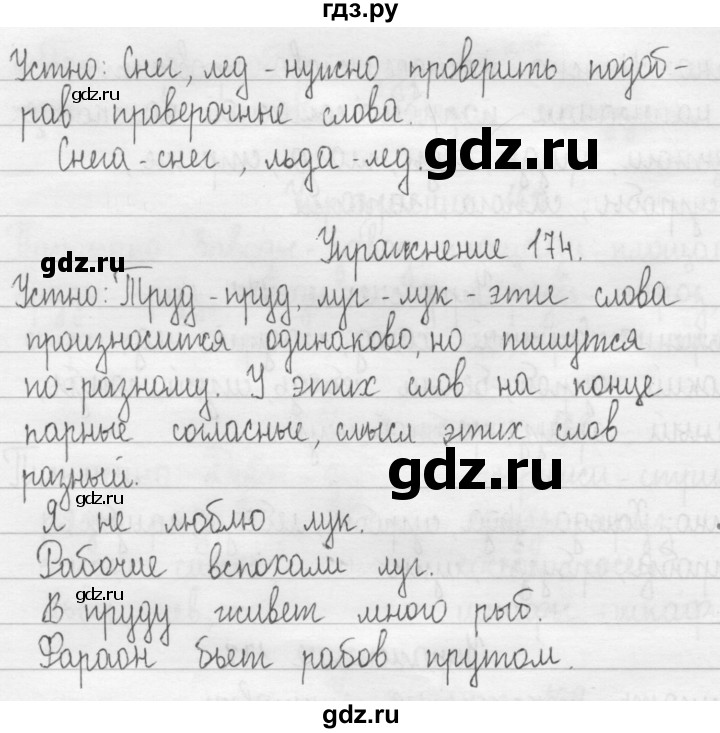 гдз.ру
Устно: Снег, лед - нужно проверить подоб-
gdz.ru
рав проверочные слова.
Снега - снег, льда - лед.
gdz.ru
gdz.ru
Упражнение 174.
gdz.ru
Устно: Труд - пруд, луг - лук - эти слова
произносится одинаково, но пишутся
по разному. У этих слов на конце
парные согласные, смысл этих слов
gdz.ru
разный.
gdz.ru
Я не люблю лук.
Рабочие вспохали луг.
gdz.ru
В пруду живет много рыб.
Фараон бьет рабов прутом.
gdz.ru
gdz.ru